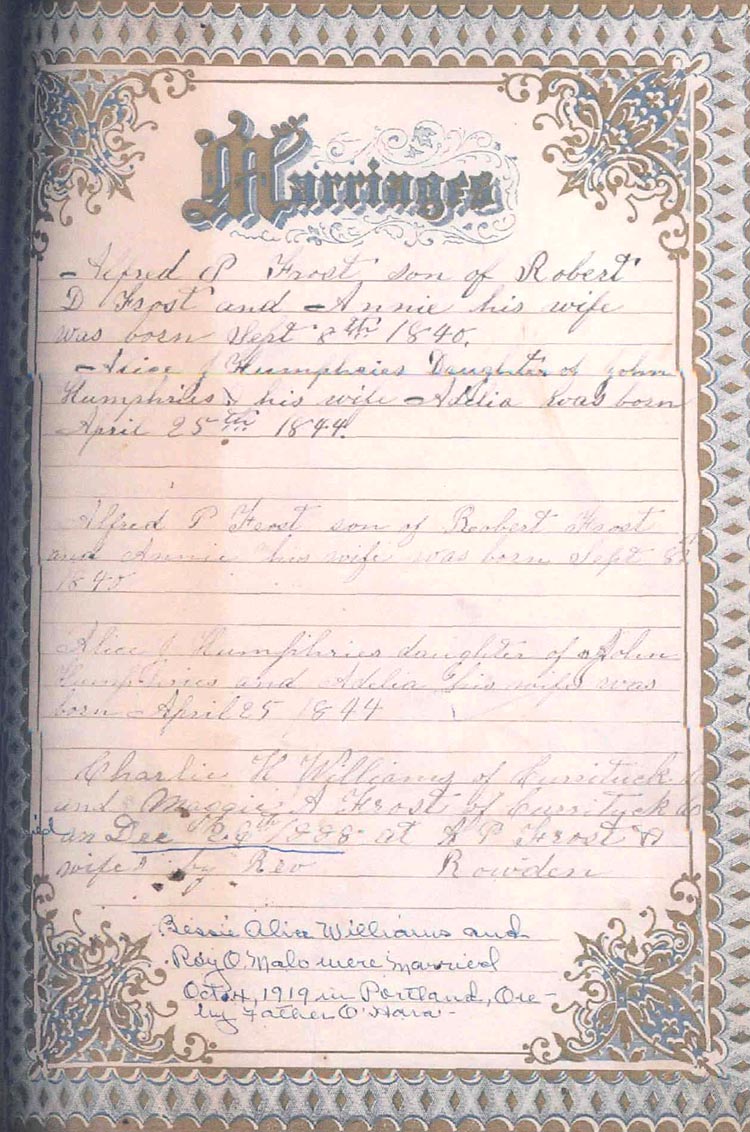 Marriages
Alfred P Frost son of Robert
D Frost and Annie his wife
was born Sept 8th 1840.
Alice J Humphries Daughter of John
Humphries & his wife Adelia was born
April 25th 1844.
Alfred P Frost son of Roobert Frost
and Annie his wife was born Sept 8th
1840
Alice J Humphries daughter of John
Humphries and Adelia his wife was
born April 25 1844
Charlie H Williams of Currituck Co
and Maggie A Frost of Currituck Co
on Dec 26th 1888 at A P Frost &
wife by Rev Rowden
Bessie Alice Williams and
Roy O. Malo were Married
Oct 4, 1919 in Portland, Ore-
by Father O'Hara-